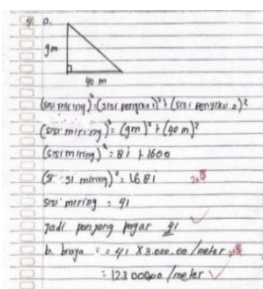 4. a.
9m
40 m
(sisi miring)² = (sisi penyiku 1)² + (sisi penyiku 2)²
(sisi miring)² = (9m)² + (40 m)²
(sisi miring)² = 81 + 1600
(si si miring)² = 1681
sisi miring = 41
Jadi panjang pagar 41
b. biaya = 41 X 3.000.00 /meter
= 123 00000 /meter